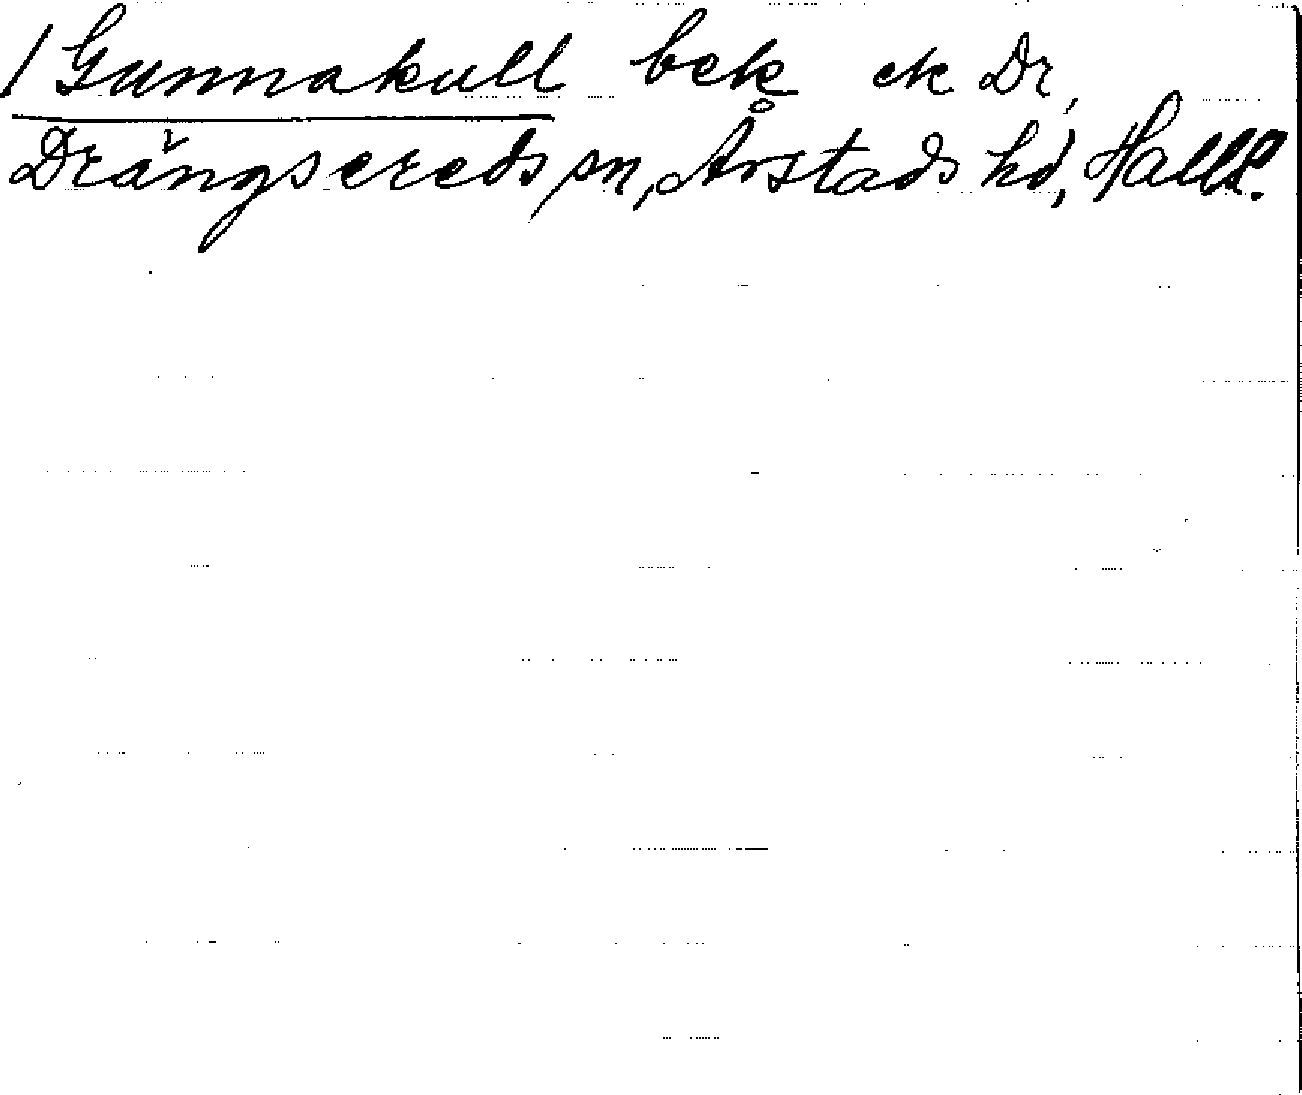 / Gunnakull bek ek Dr,
Drängsereds sn, Årstads hd, Hall.